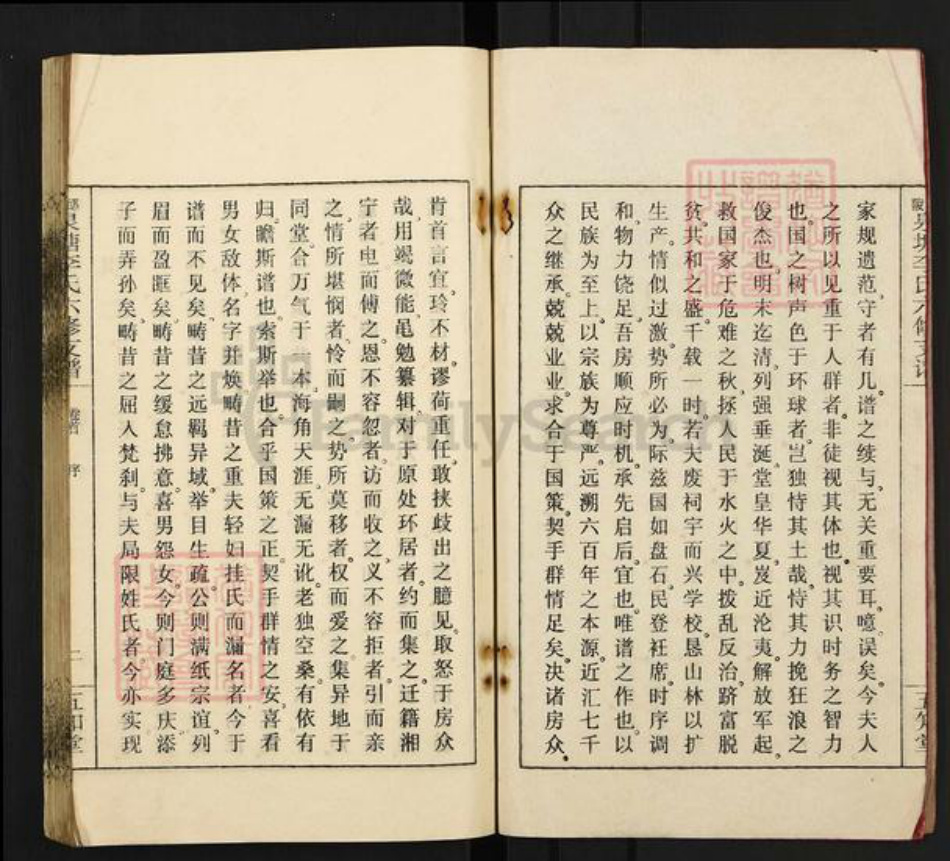 家规遗范,守者有几。谱之续与,无关重要耳。噫误矣。今夫人
之所以见重于人群者。非徒视其体也。视其识时务之智力
也。国之树声色于环球者。岂独恃其土哉。恃其力挽狂浪之
俊杰也。明末迄清,列强垂涎。堂皇华夏。岌近沦夷。解放军起。
救国家于危难之秋,拯人民于水火之中。拨乱反治。跻富脱
贫。共和之盛。千载一时。若夫废祠宇而兴学校。恳山林以扩
生产。情似过激。势所必为。际兹国如盘石,民登衽席。时序调
和,物力饶足。吾房顺应时机。承先启后。宜也。唯谱之作也。以
民族为至上。以宗族为尊严。远溯六百年之本源。近汇七千
众之继承。兢兢业业。求合于国策。契乎群情足矣。决诸房众。
肯首言宜。玲不材。谬荷重任,敢挟歧出之臆见。取怒于房众
哉。用竭微能。黾勉纂辑。对于原处环居者。约而集之。迁籍湘
宁者电而傅之。恩不容忽者。访而收之。义不容拒者。引而亲
之。情所堪悯者。怜而嗣之。势所莫移者。权而爱之。集异地于
同堂。合万气于一本。海角天涯。无漏无讹。老独空桑。有依有
归。瞻斯谱也。索斯举也。合乎国策之正。契乎群情之安。喜看
男女敌体。名字并焕。畴昔之重夫轻妇挂氏而漏名者。今于
谱而不见矣。畴昔之远羁异域。举目生疏。公则满纸宗谊。列
眉而盈眶矣。畴昔之缓怠拂意。喜男怨女。今则门庭多庆。添
子而弄孙矣。畴昔之屈入梵刹与夫局限姓氏者。今亦实现
泉塘李氏六修支谱
卷首
序
二